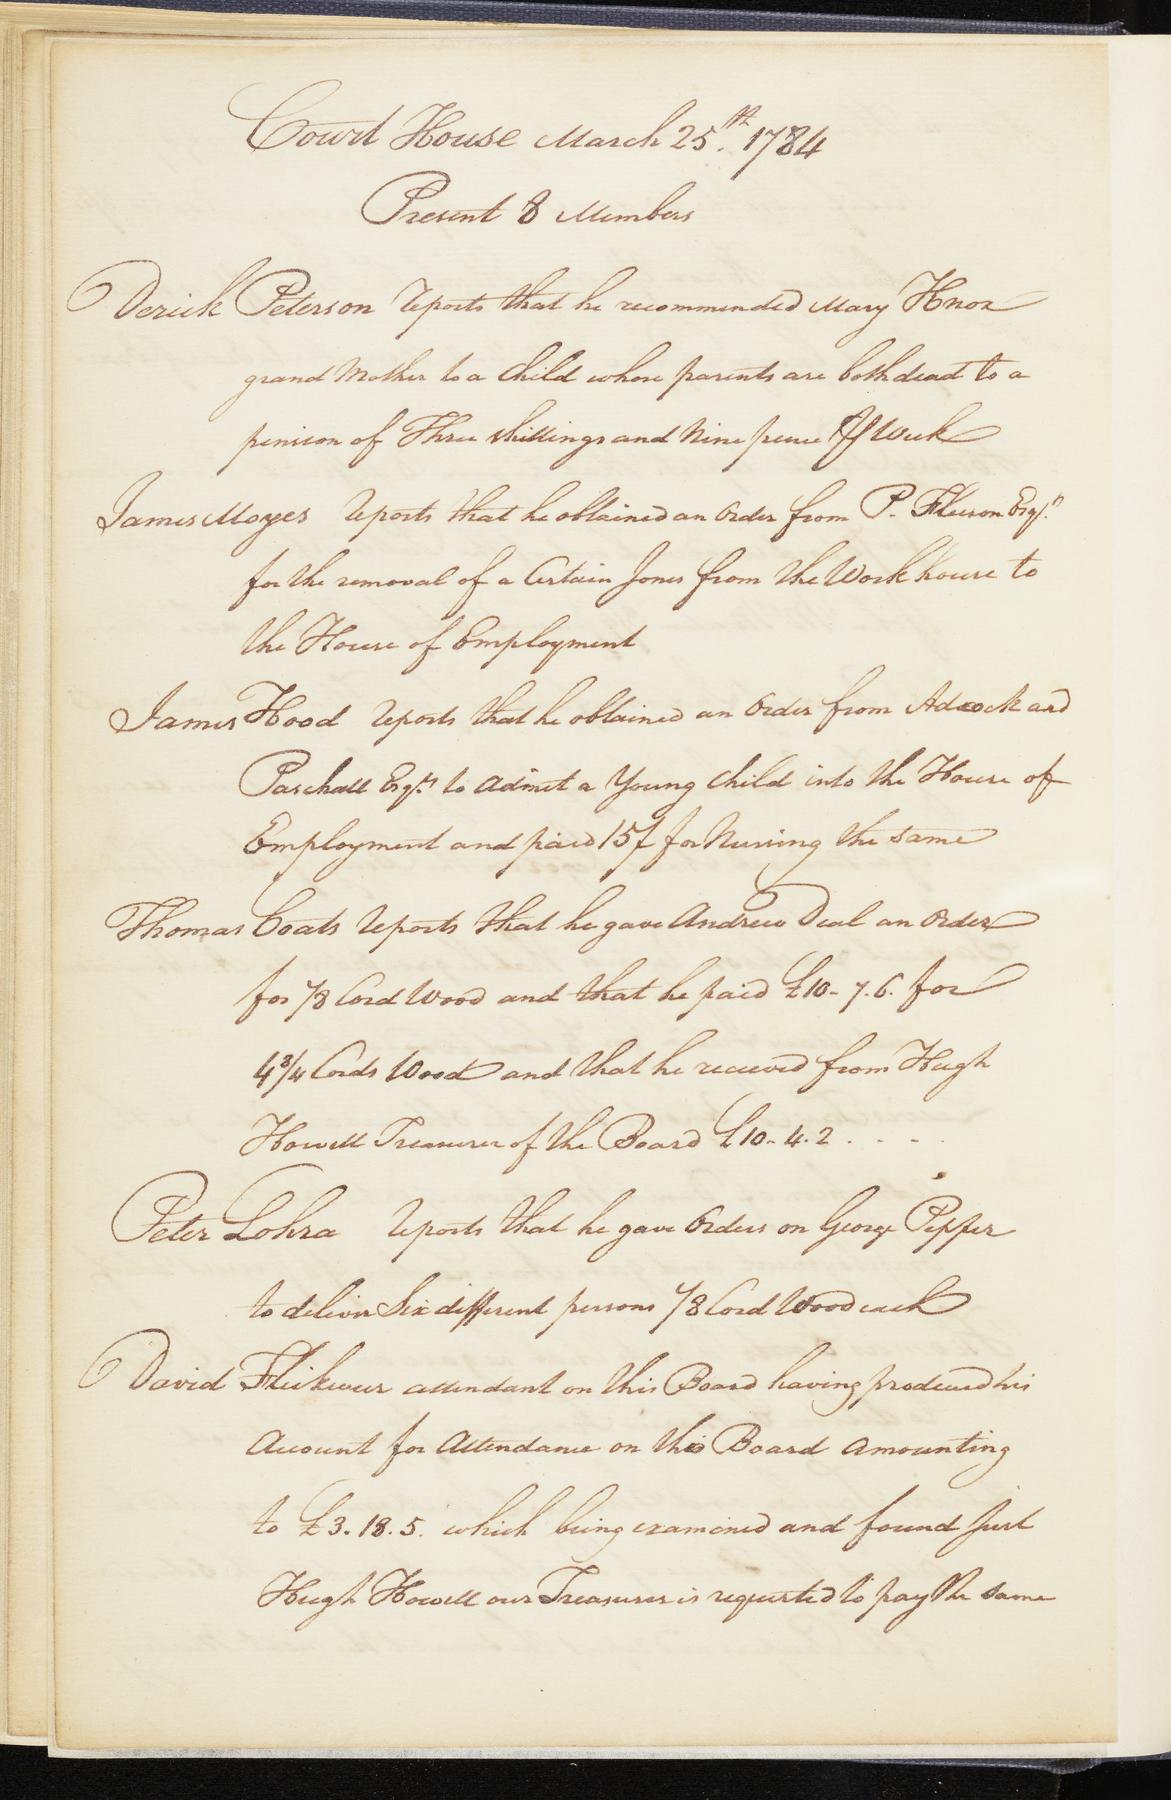 Court House March 25th. 1784
Present 8 Members
Derick Peterson reports that he recommended Mary Knox
grand Mother to a Child whose parents are both dead to a
pension of Three shillings and Nine pence Week
James Moyes reports that he obtained an Order from P. Fleeson Esqr.
for the removal of a Certain Jones from the Work house to
the House of Employment
James Hood reports that he obtained an Order from Adcock and
Paschall Esqrs. to admit a Young Child into the House of
Employment and paid 15/ for Nursing the same
Thomas Coats reports that he gave Andrew Deal an Order
for 1/8 Cord Wood and that he paid £10-7.6. for
4 3/4 Cords Wood and that he received from Hugh
Howell Treasurer of the Board £10-4.2 . - - -
Peter Lohra reports that he gave Orders on George Pepper
to deliver Six different persons 1/8 Cord Wood each
David Flickwer attendant on this Board having produced his
Account for Attendance on this Board amounting
to £3.18.5. which being examined and found Just
Hugh Howell our Treasurer is requested to pay the same